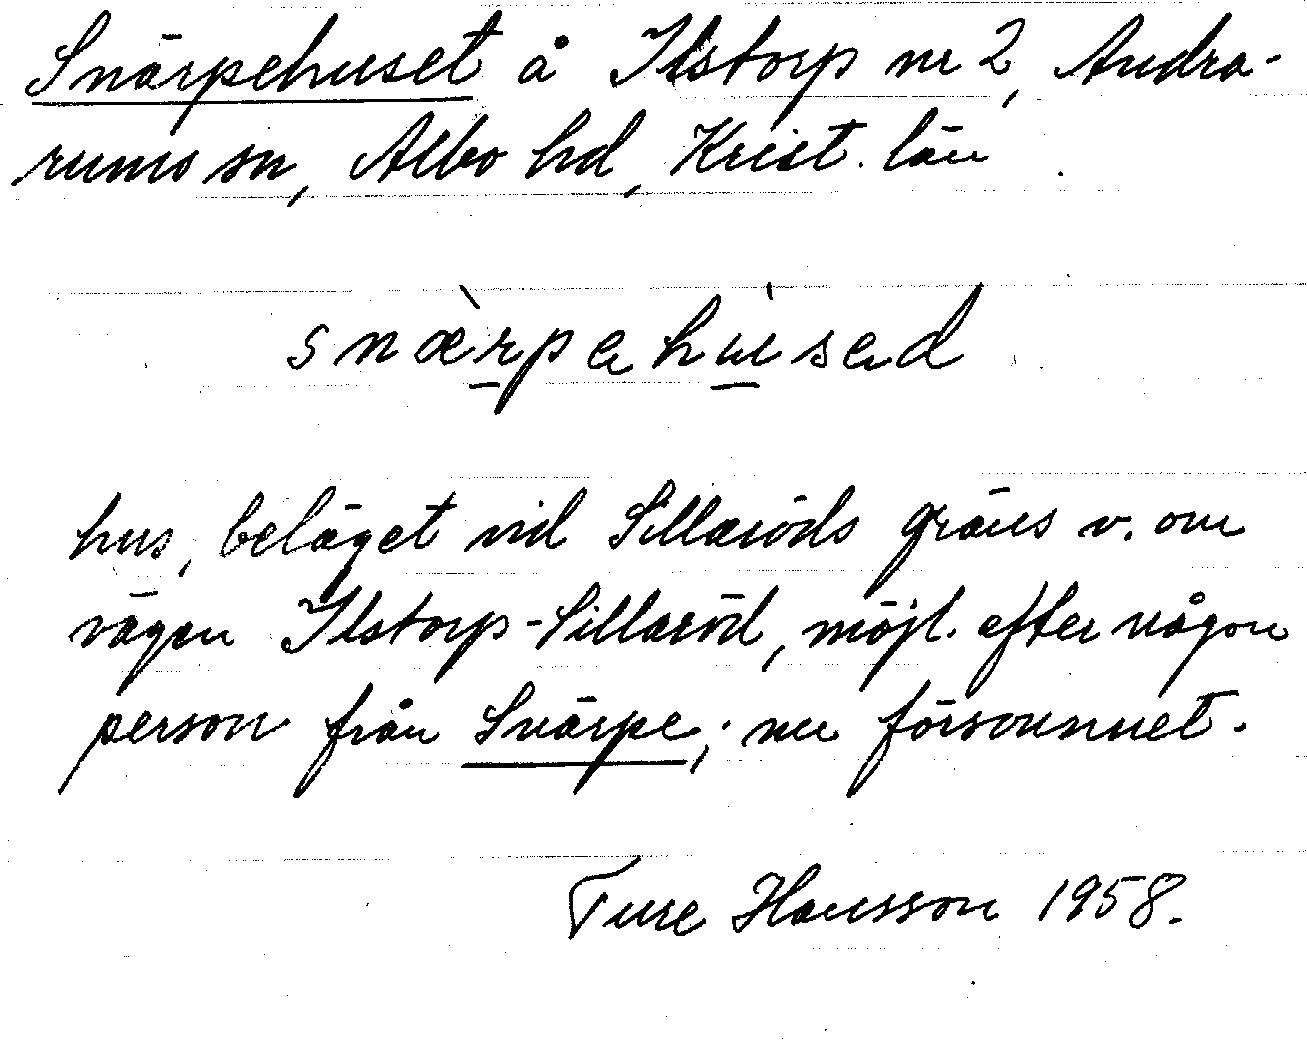 Snärpehuset å Ilstorp nr 2, Andra-
rums sn, Albo hd, Krist. län
snæ̀rpahu̇sad
hus, beläget vid Sillaröds gräns v. om
vägen Ilstorp-Sillaröd, möjl. efter någon
person från Snärpe; nu försvunnet.
Ture Hansson 1958.